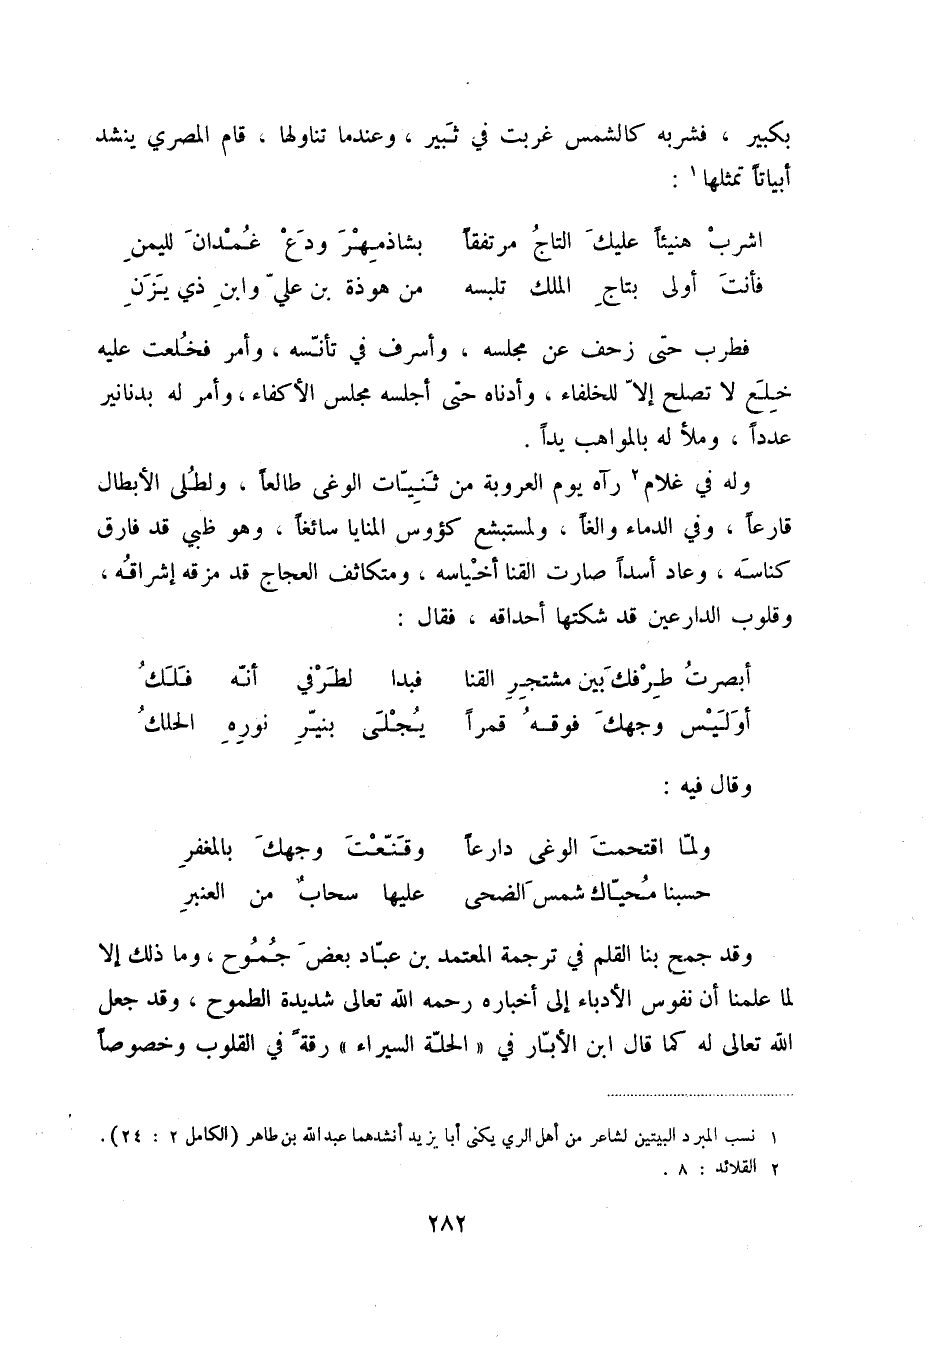 بكبير ، فشربه كالشمس غربت في ثَبير ، وعندما تناولها ، قام المصري ينشد
أبياتاً تمثلها ١ :
اشربْ هنيئاً عليكَ التاجُ مرتفقاً بشاذمِهْرَ ودَعْ غُمْدانَ لليمنِ
فأنتَ أولى بتاجِ الملك تلبسه من هوذة بن عليّ وابنِ ذي يَزَنِ
فطرب حتّى زحف عن مجلسه ، وأسرف في تأنّسه ، وأمر فخُلعت عليه
خِلَع لا تصلح إلاّ للخلفاء ، وأدناه حتّى أجلسه مجلس الأكفاء ، وأمر له بدنانير
عدداً ، وملأ له بالمواهب يداً .
وله في غلام ٢ رآه يوم العروبة من ثَنِيّات الوغى طالعاً ، ولطُلى الأبطال
قارعاً ، وفي الدماء والغاً ، ولمستبشع كؤوس المنايا سائغاً ، وهو ظبي قد فارق
كناسَه ، وعاد أسداً صارت القنا أخْياسه ، ومتكاثف العجاج قد مزقه إشراقُه ،
وقلوب الدارعين قد شكتها أحداقه ، فقال :
أبصرتُ طِرْفكَ بين مشتجِرِ القنا فبدا لطَرْفي أنّه فَلَكُ
أوَلَيْس وجهكَ فوقهُ قمراً يُجْلَى بنيّرِ نورِهِ الحلكُ
وقال فيه :
ولمّا اقتحمتَ الوغى دارعاً وقَنّعْتَ وجهكَ بالمغفرِ
حسبنا مُحيّاك شمسَ الضحى عليها سحابٌ من العنبرِ
وقد جمح بنا القلم في ترجمة المعتمد بن عبّاد بعضَ جُمُوح ، وما ذلك إلا
لما علمنا أن نفوس الأدباء إلى أخباره رحمه الله تعالى شديدة الطموح ، وقد جعل
الله تعالى له كما قال ابن الأبّار في « الحلّة السيراء » رقةً في القلوب وخصوصاً
١ نسب المبرد البيتين لشاعر من أهل الري يكنى أبا يزيد أنشدهما عبدالله بن طاهر (الكامل ٢ : ٢٤) .
٢ القلائد : ٨ .
٢٨٢